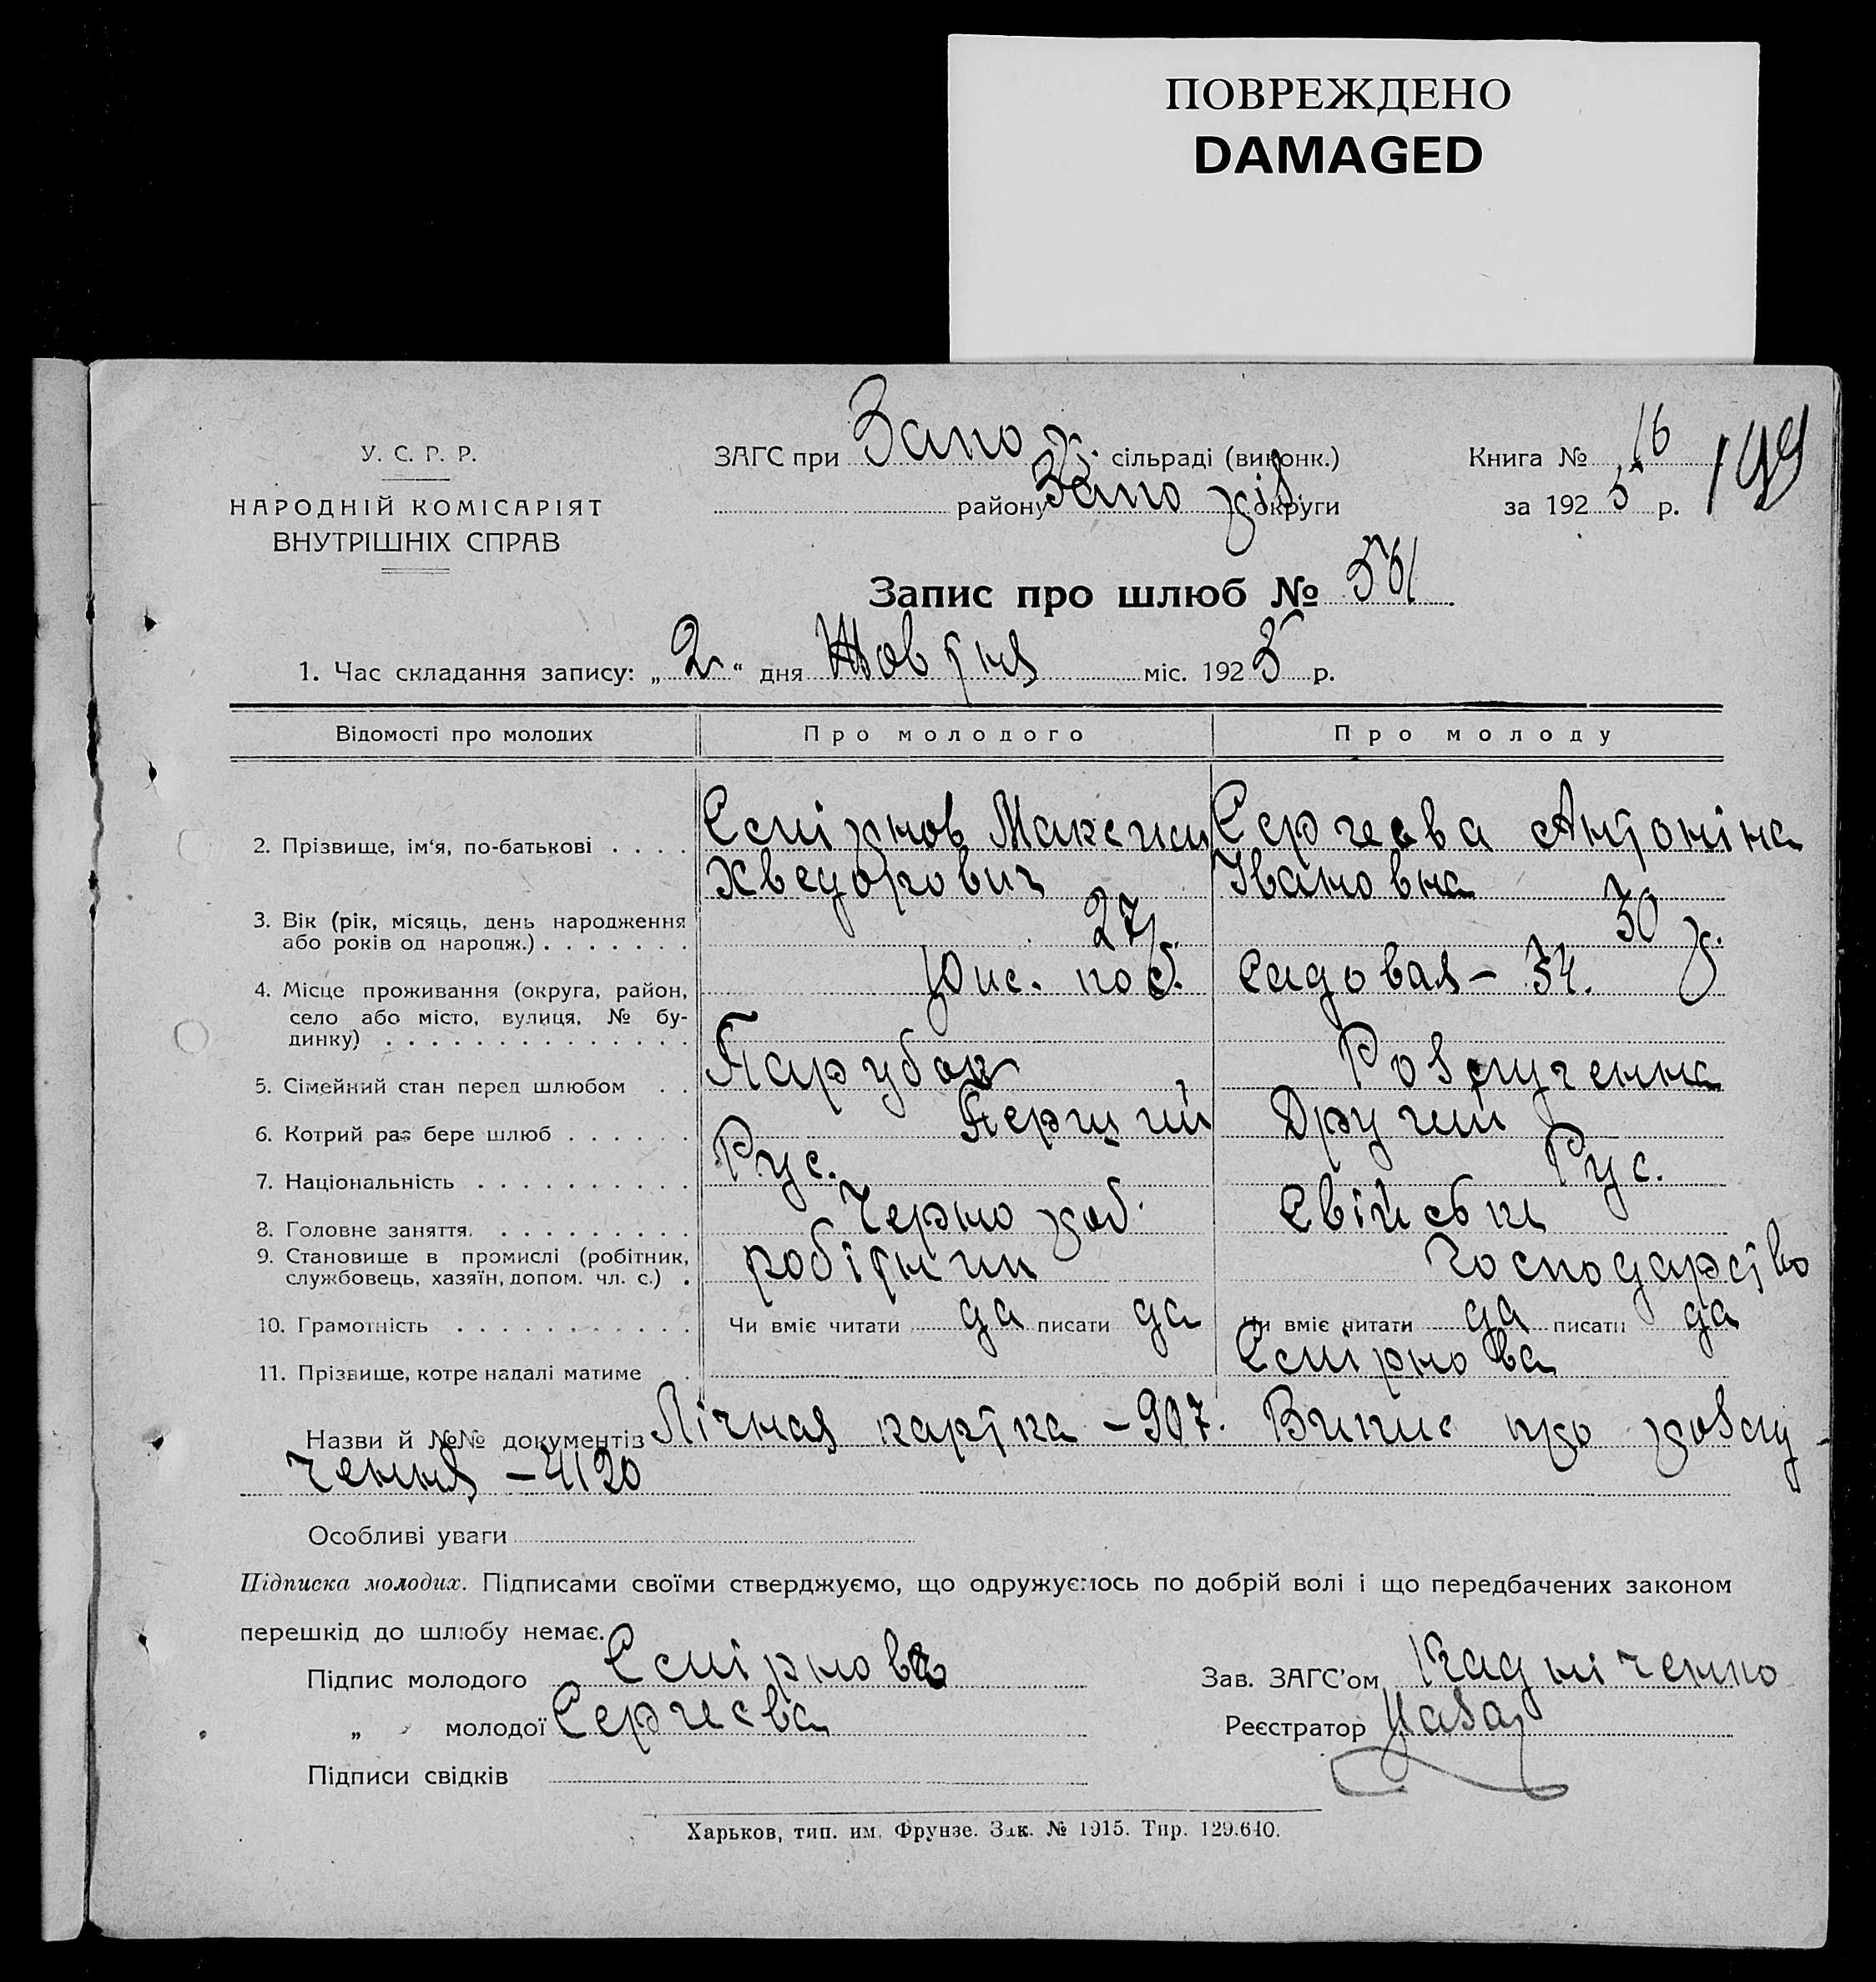 ПОВРЕЖДЕНО
DAMAGED
У. С. Р. Р.
НАРОДНІЙ КОМІСАРІЯТ
ВНУТРІШНІХ СПРАВ
ЗАГС при Запор. сільраді (виконк.)
району Запоріз округи
Книга № 16
за 1925 р.
199
Запис про шлюб № 561
1. Час складання запису: „2“ дня Жовтня міс. 1925 р.
Відомості про молодих
Про молодого
Про молоду
2. Прізвище, ім'я, по-батькові . . . .
Смірнов Максим
Хведорович
Сергеева Антоніна
Івановна
3. Вік (рік, місяць, день народження
або років од народж.) . . . . . . .
27 р.
30 р.
4. Місце проживання (округа, район,
село або місто, вулиця, № бу-
динку) . . . . . . . . . . . . . .
пос.
Садовая – 34.
5. Сімейний стан перед шлюбом . .
Парубок
Розлученна
6. Котрий раз бере шлюб . . . . . .
Перший
Другий
7. Національність . . . . . . . . . .
Рус.
Рус.
8. Головне заняття. . . . . . . . . .
Чернороб.
Свійськи
9. Становище в промислі (робітник,
службовець, хазяїн, допом. чл. с.) .
робітник
господарство
10. Грамотність . . . . . . . . . . .
Чи вміє читати да писати да
Чи вміє читати да писати да
11. Прізвище, котре надалі матиме .
Смірнова
Назви й №№ документів Лічная картка – 907. Випис про розлу-
чення – 4120
Особливі уваги
Підписка молодих. Підписами своїми стверджуємо, що одружуємось по добрій волі і що передбачених законом
перешкід до шлюбу немає.
Підпис молодого Смірнов
„ молодої Сергеева
Підписи свідків
Зав. ЗАГС'ом Кадніченко
Реєстратор
Харьков, тип. им. Фрунзе. Зак. № 1915. Тир. 129.640.